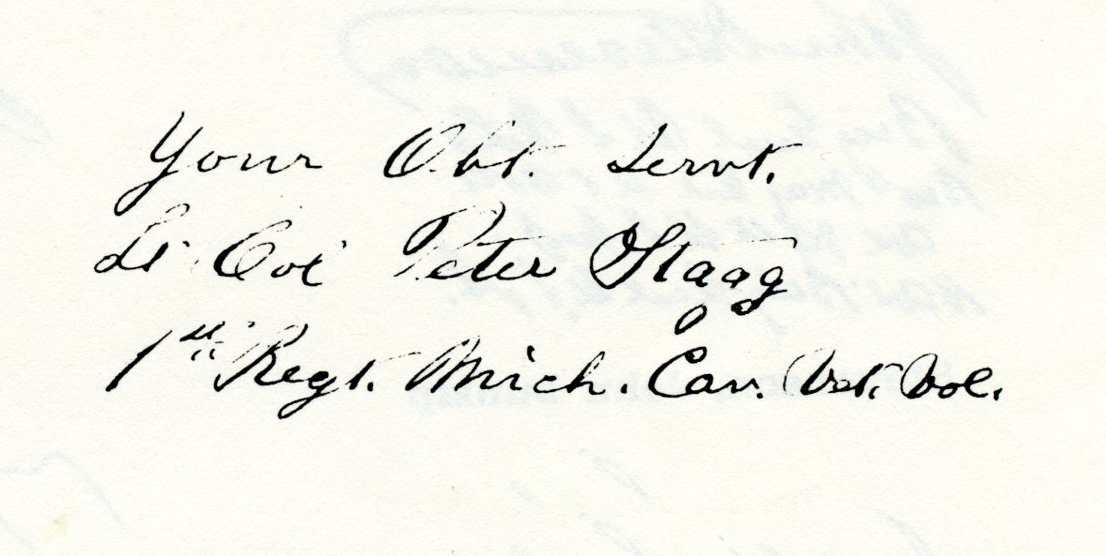 Your Obt. Servt.
Lt Col Peter Stagg
1st Regt. Mich. Cav. Vet. Vol.